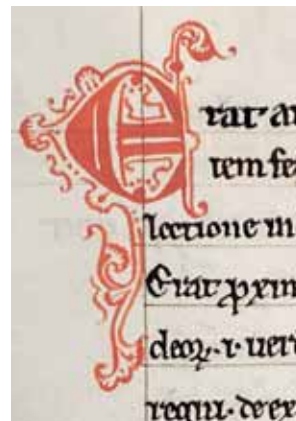 Erat an
tem fe
lectione in
Erat pxim
deoꝝ. ⁊ uert
regni. de ex